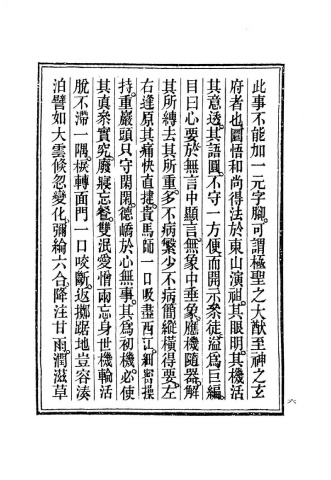 此事不能加一元字腳。可謂極聖之大猷至神之玄
府者也。圜悟和尚得法於東山演祖。其眼明。其機活
其意透。其語圓。不守一方便。而開示叅徒。溢爲巨編。
目曰心要。於無言中顯言。無象中垂象。應機隨器。解
其所縛。去其所重。多不病繁。少不病簡。縱橫得要。左
右逢原。其痛快直捷。貴馬師一口吸盡西江。細密操
持。重巖頭只守閑閑。德嶠於心無事。其爲初機。必使
其眞叅實究。廢寢忘餐。雙泯愛憎。兩忘身世。機輪活
脫。不滯一隅。棙轉面門。一口咬斷。返擲踞地。豈容湊
泊。譬如大雲倐忽變化。彌綸六合。降注甘雨。潤滋草
六